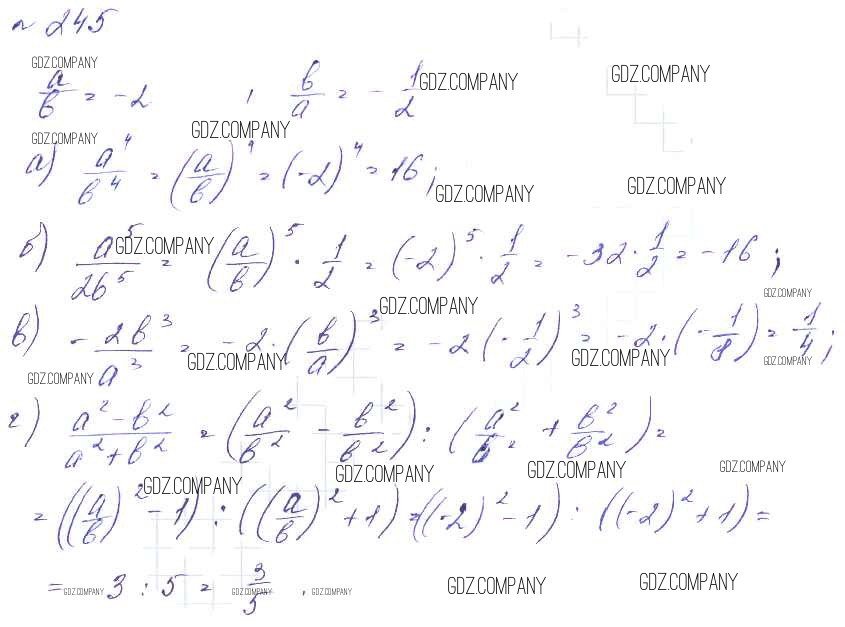 № 245
GDZ.COMPANY
a/b = -2 , b/a = - 1/2 GDZ.COMPANY GDZ.COMPANY
GDZ.COMPANY GDZ.COMPANY
а) a⁴/b⁴ = (a/b)⁴ = (-2)⁴ = 16; GDZ.COMPANY GDZ.COMPANY
б) a⁵/2b⁵ GDZ.COMPANY = (a/b)⁵ · 1/2 = (-2)⁵ · 1/2 = -32 · 1/2 = -16 ;
GDZ.COMPANY GDZ.COMPANY
в) - 2b³/a³ = -2 · (b/a)³ = -2 (- 1/2)³ = -2 · (- 1/8) = 1/4 ;
GDZ.COMPANY GDZ.COMPANY GDZ.COMPANY GDZ.COMPANY
г) a² - b²/a² + b² = (a²/b² - b²/b²) : (a²/b² + b²/b²) =
GDZ.COMPANY GDZ.COMPANY GDZ.COMPANY GDZ.COMPANY
= ((a/b)² - 1) : ((a/b)² + 1) = ((-2)² - 1) : ((-2)² + 1) =
= GDZ.COMPANY 3 : 5 = 3/5 GDZ.COMPANY . GDZ.COMPANY GDZ.COMPANY GDZ.COMPANY